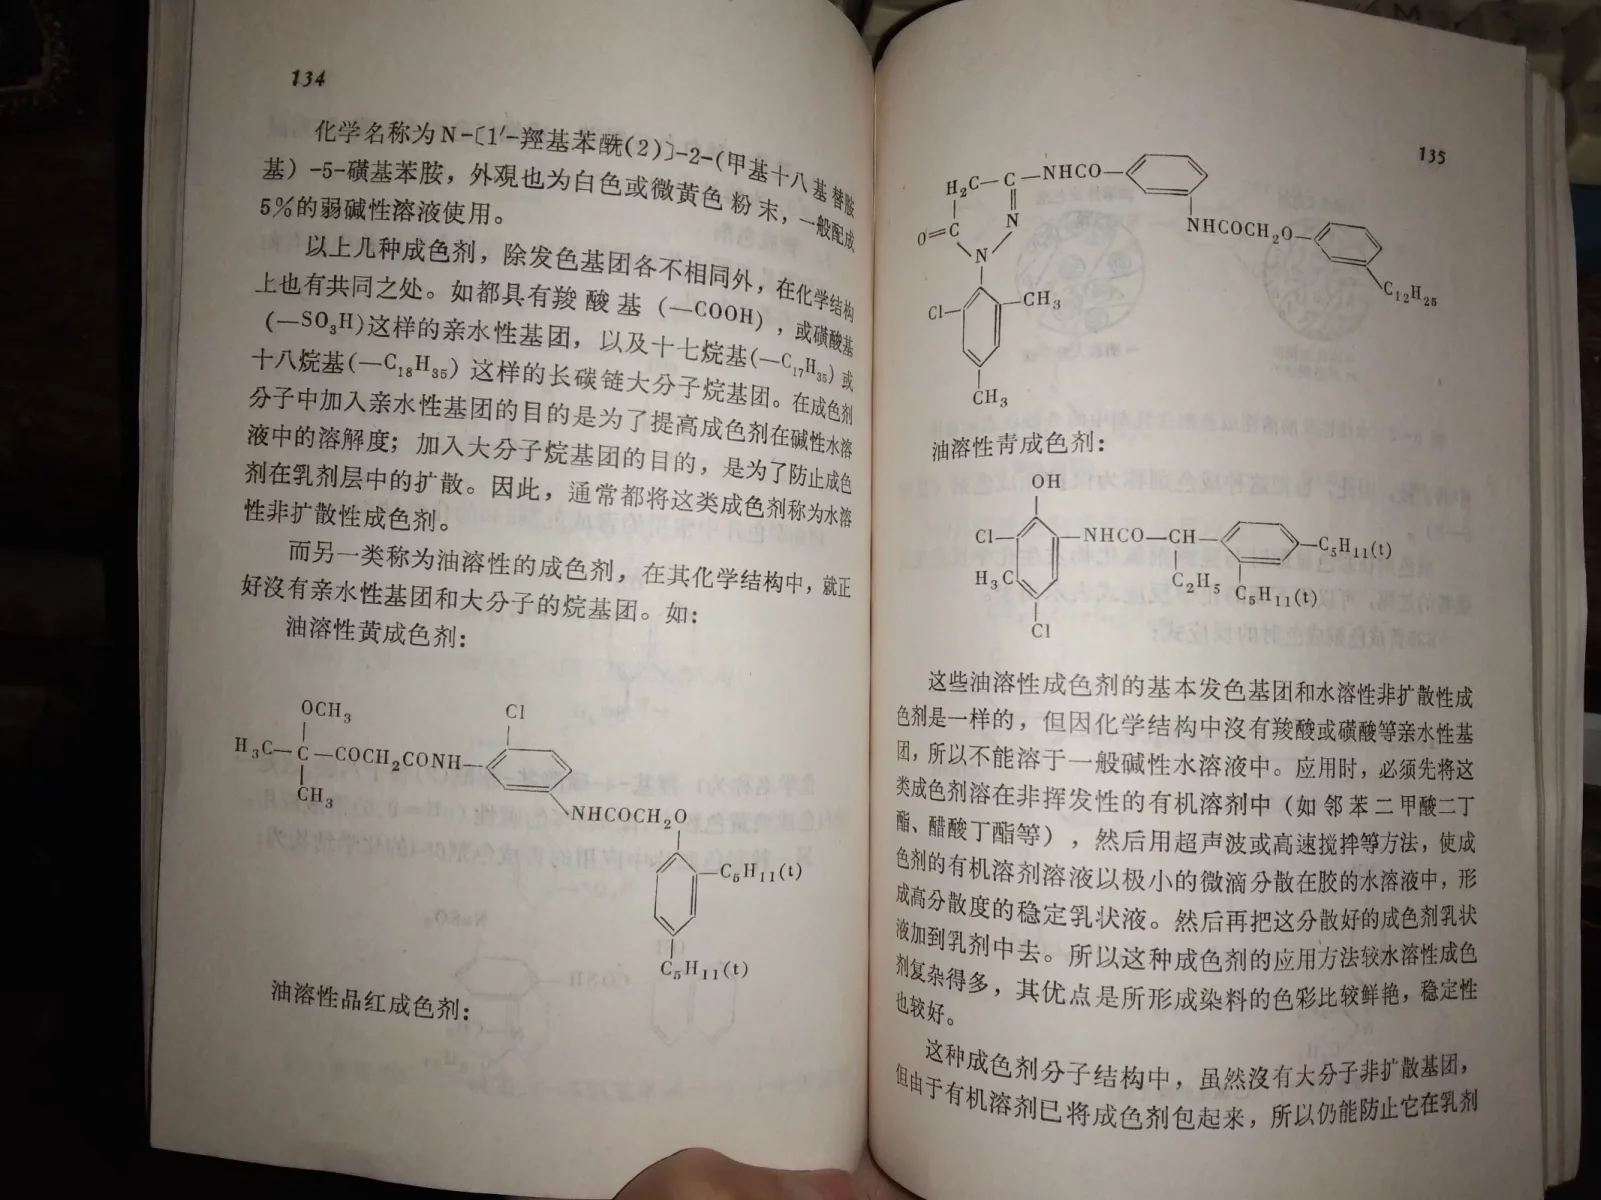 134
化学名称为N-〔1′-羥基苯酰(2)〕-2-(甲基十八基替胺
基)-5-磺基苯胺，外观也为白色或微黃色粉末，一般配成
5%的弱碱性溶液使用。
以上几种成色剂，除发色基团各不相同外，在化学结构
上也有共同之处。如都具有羧酸基(—COOH)，或磺酸基
(—SO₃H)这样的亲水性基团，以及十七烷基(—C₁₇H₃₅)或
十八烷基(—C₁₈H₃₅)这样的长碳链大分子烷基团。在成色剂
分子中加入亲水性基团的目的是为了提高成色剂在碱性水溶
液中的溶解度；加入大分子烷基团的目的，是为了防止成色
剂在乳剂层中的扩散。因此，通常都将这类成色剂称为水溶
性非扩散性成色剂。
而另一类称为油溶性的成色剂，在其化学结构中，就正
好沒有亲水性基团和大分子的烷基团。如：
油溶性黃成色剂：
OCH₃
Cl
H₃C—C—COCH₂CONH—
CH₃
NHCOCH₂O
—C₅H₁₁(t)
C₅H₁₁(t)
油溶性品红成色剂：
135
H₂C—C—NHCO—
N
NHCOCH₂O—
O=C
N
C₁₂H₂₅
Cl—
—CH₃
CH₃
油溶性青成色剂：
OH
Cl—
—NHCO—CH—
—C₅H₁₁(t)
H₃C
C₂H₅
C₅H₁₁(t)
Cl
这些油溶性成色剂的基本发色基团和水溶性非扩散性成
色剂是一样的，但因化学结构中沒有羧酸或磺酸等亲水性基
团，所以不能溶于一般碱性水溶液中。应用时，必须先将这
类成色剂溶在非挥发性的有机溶剂中（如邻苯二甲酸二丁
酯、醋酸丁酯等），然后用超声波或高速搅拌等方法，使成
色剂的有机溶剂溶液以极小的微滴分散在胶的水溶液中，形
成高分散度的稳定乳状液。然后再把这分散好的成色剂乳状
液加到乳剂中去。所以这种成色剂的应用方法较水溶性成色
剂复杂得多，其优点是所形成染料的色彩比较鲜艳，稳定性
也较好。
这种成色剂分子结构中，虽然沒有大分子非扩散基团，
但由于有机溶剂已将成色剂包起来，所以仍能防止它在乳剂